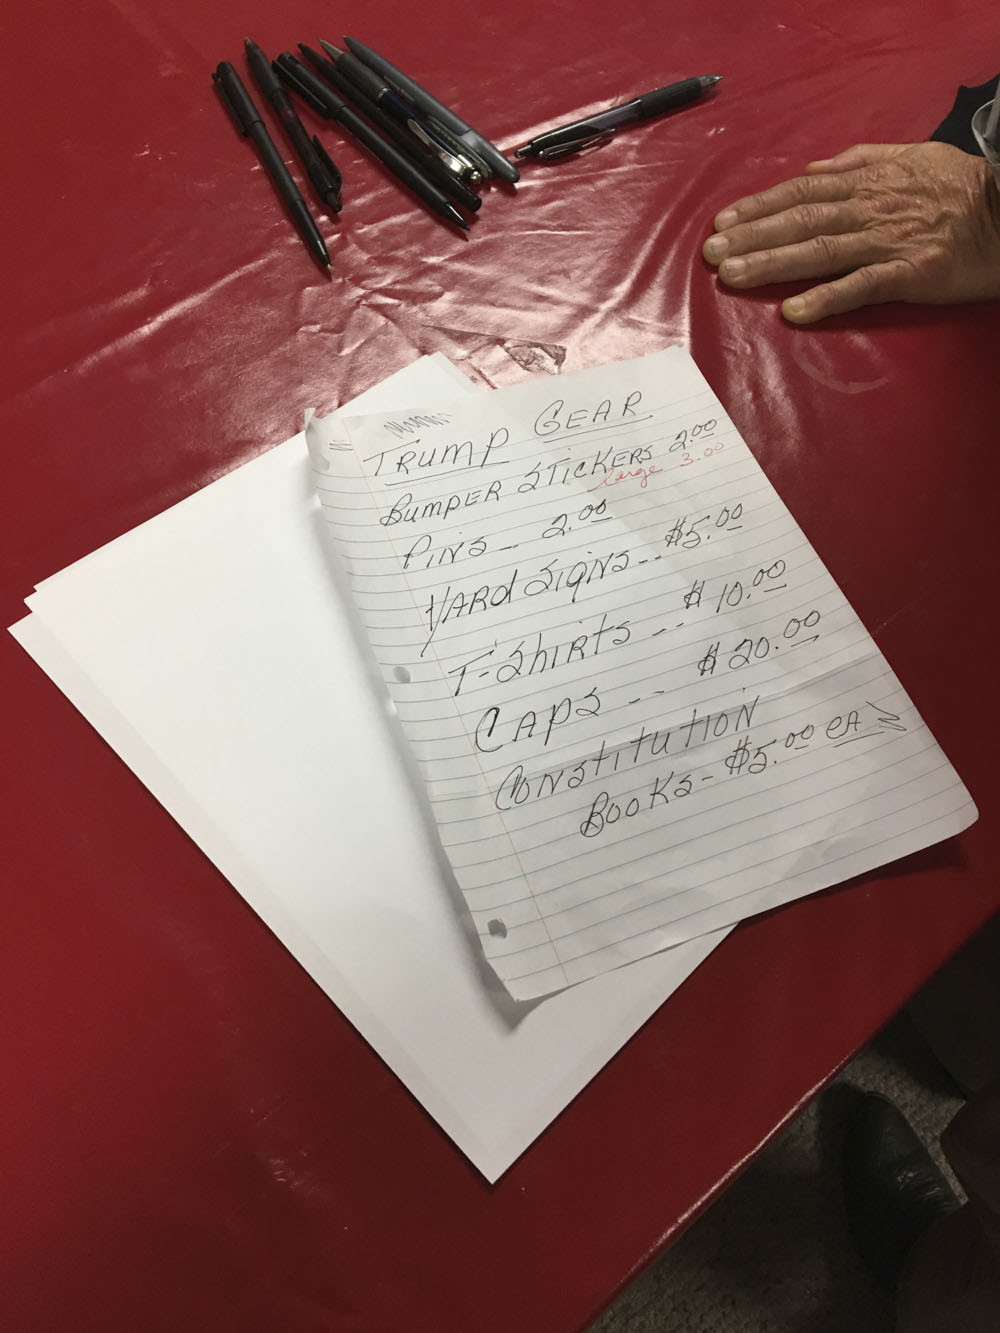 TRUMP GEAR
BUMPER STICKERS 2.00
large 3.00
PINS -- 2.00
YARd SIgNS -- $5.00
T-ShIRTS -- $10.00
CAPS -- $20.00
CONSTITUTION
BOOKS - $5.00 eA